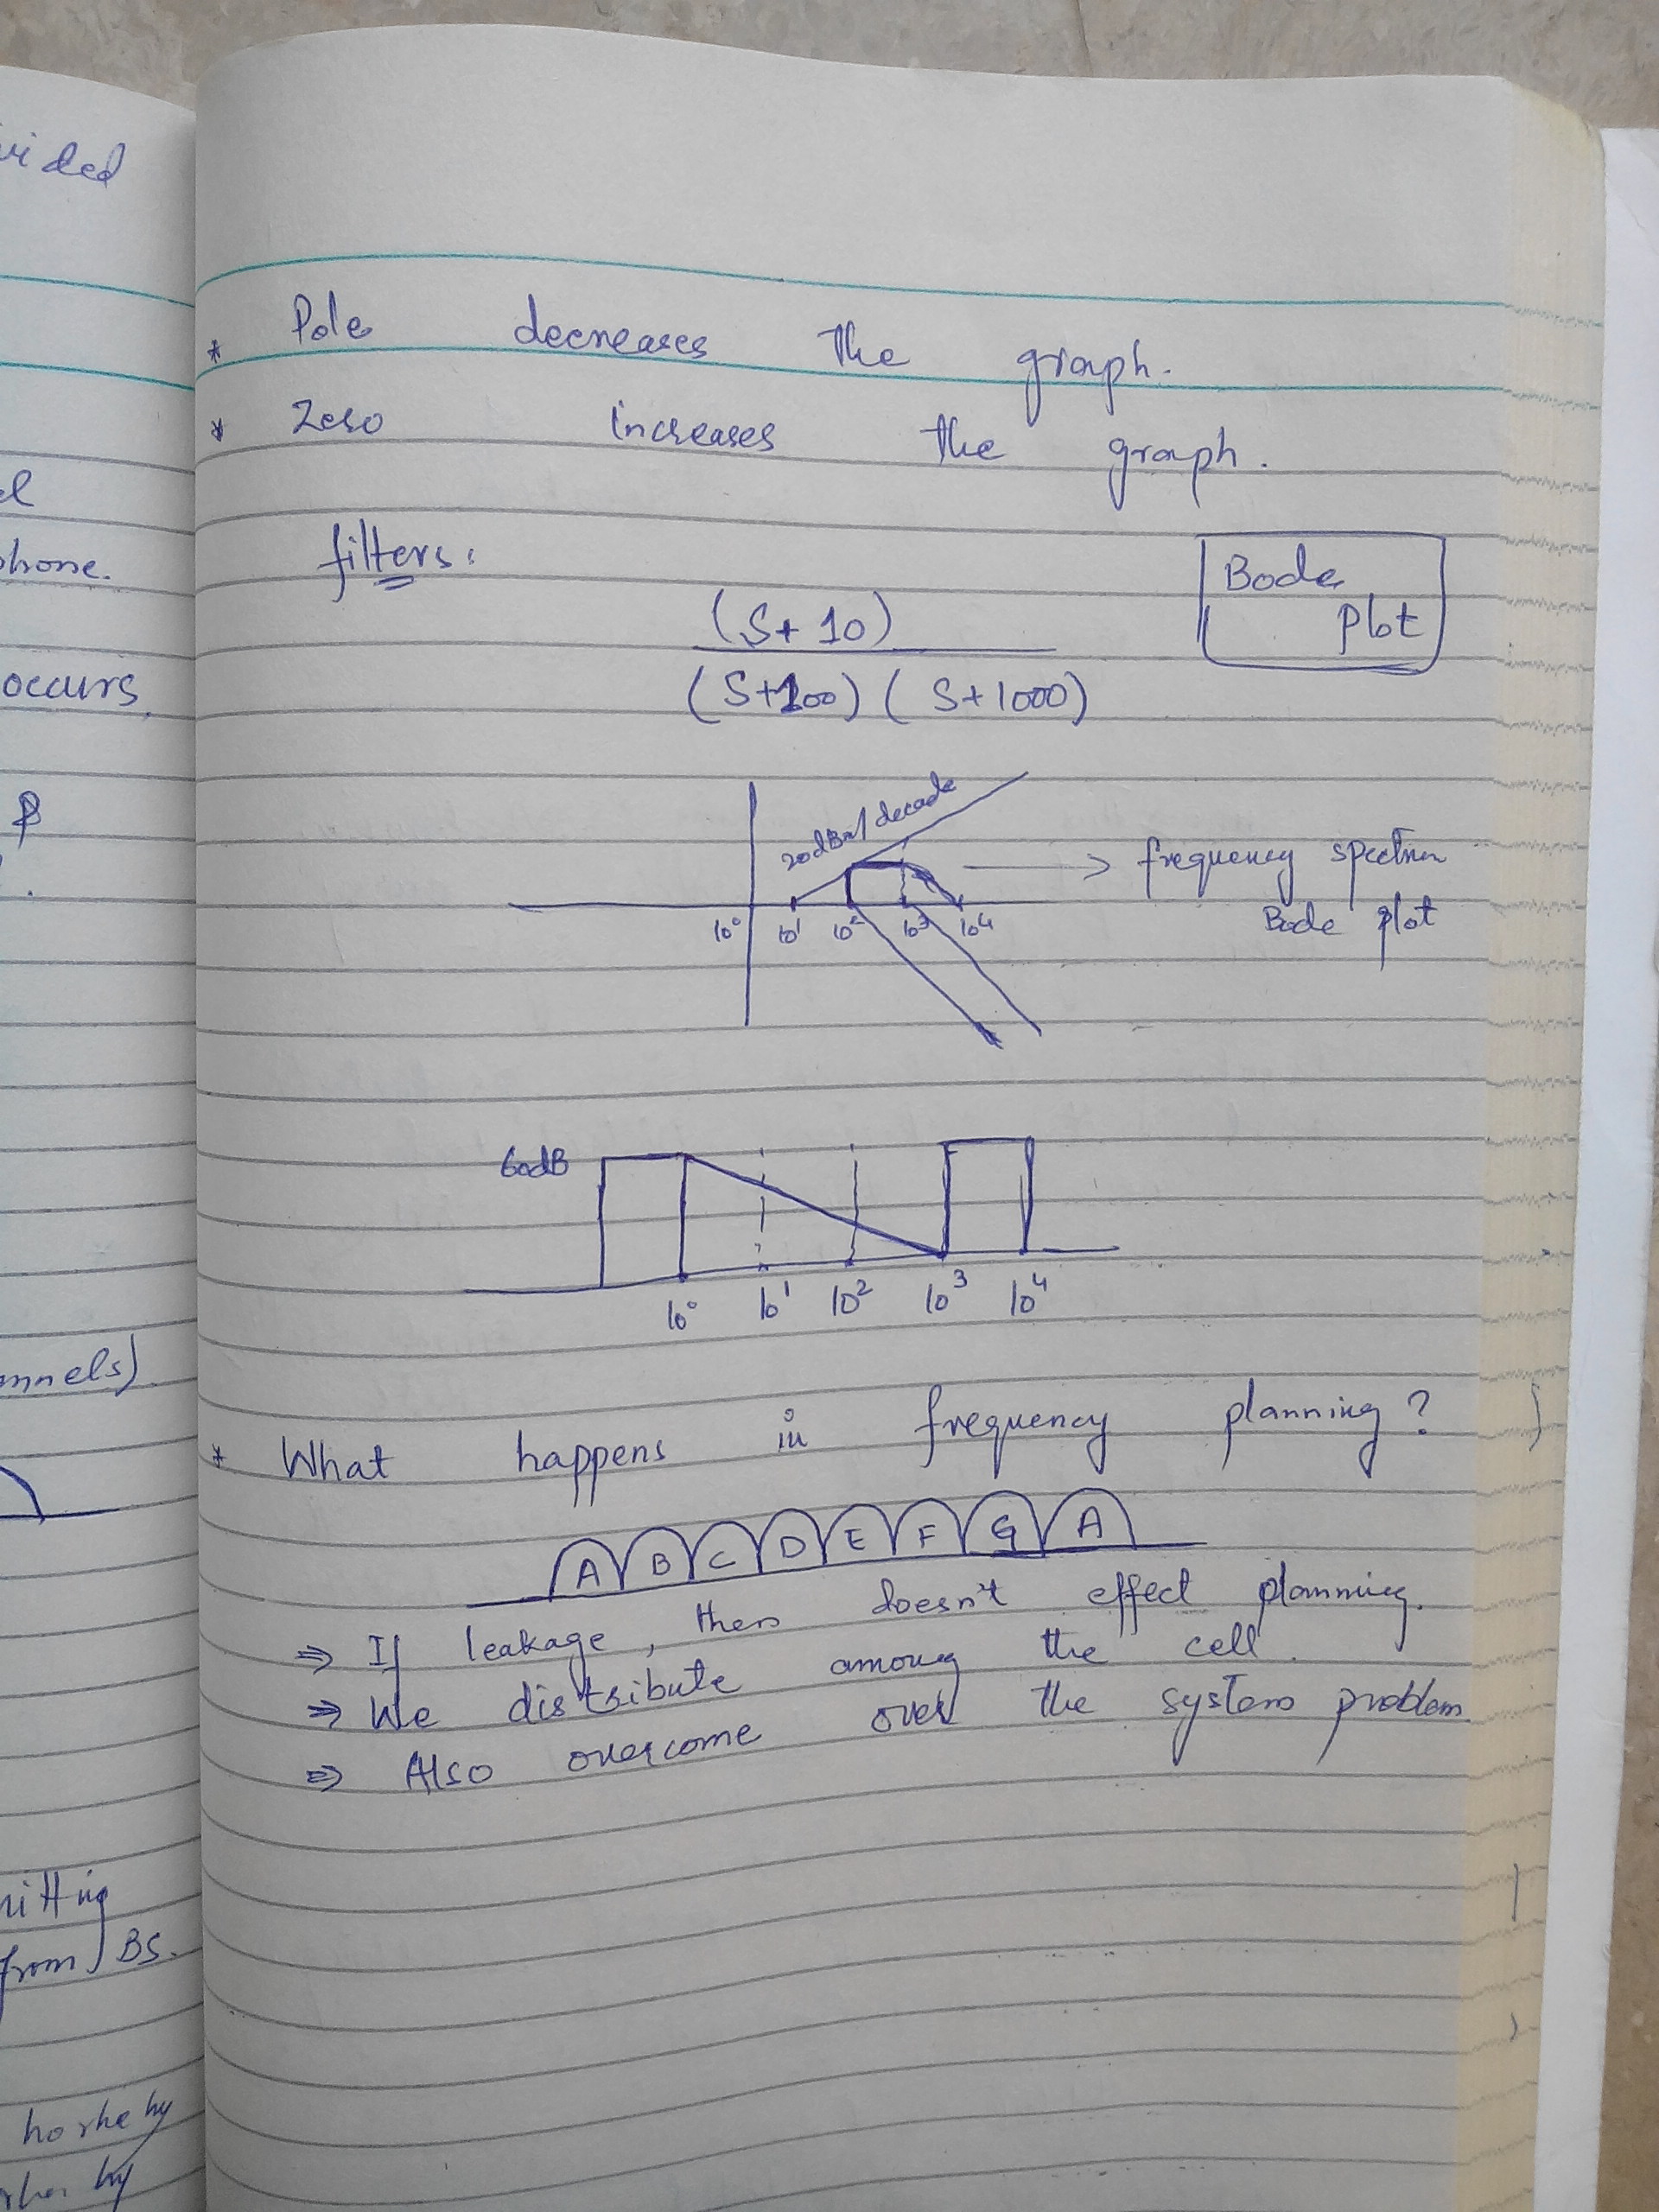 vided
el
phone.
occurs.
nnels)
nitting
from BS.
* Pole decreases the graph.
* Zero increases the graph.
filters:
Bode
plot
(S+10)
(S+100) (S+1000)
20dBm/decade
→ frequency spectrum
Bode plot
10⁰ 10¹ 10² 10³ 10⁴
60dB
10⁰ 10¹ 10² 10³ 10⁴
* What happens in frequency planning?
A B C D E F G A
⇒ If leakage, then doesn't effect planning.
⇒ We distribute among the cell.
⇒ Also overcome over the system problem.